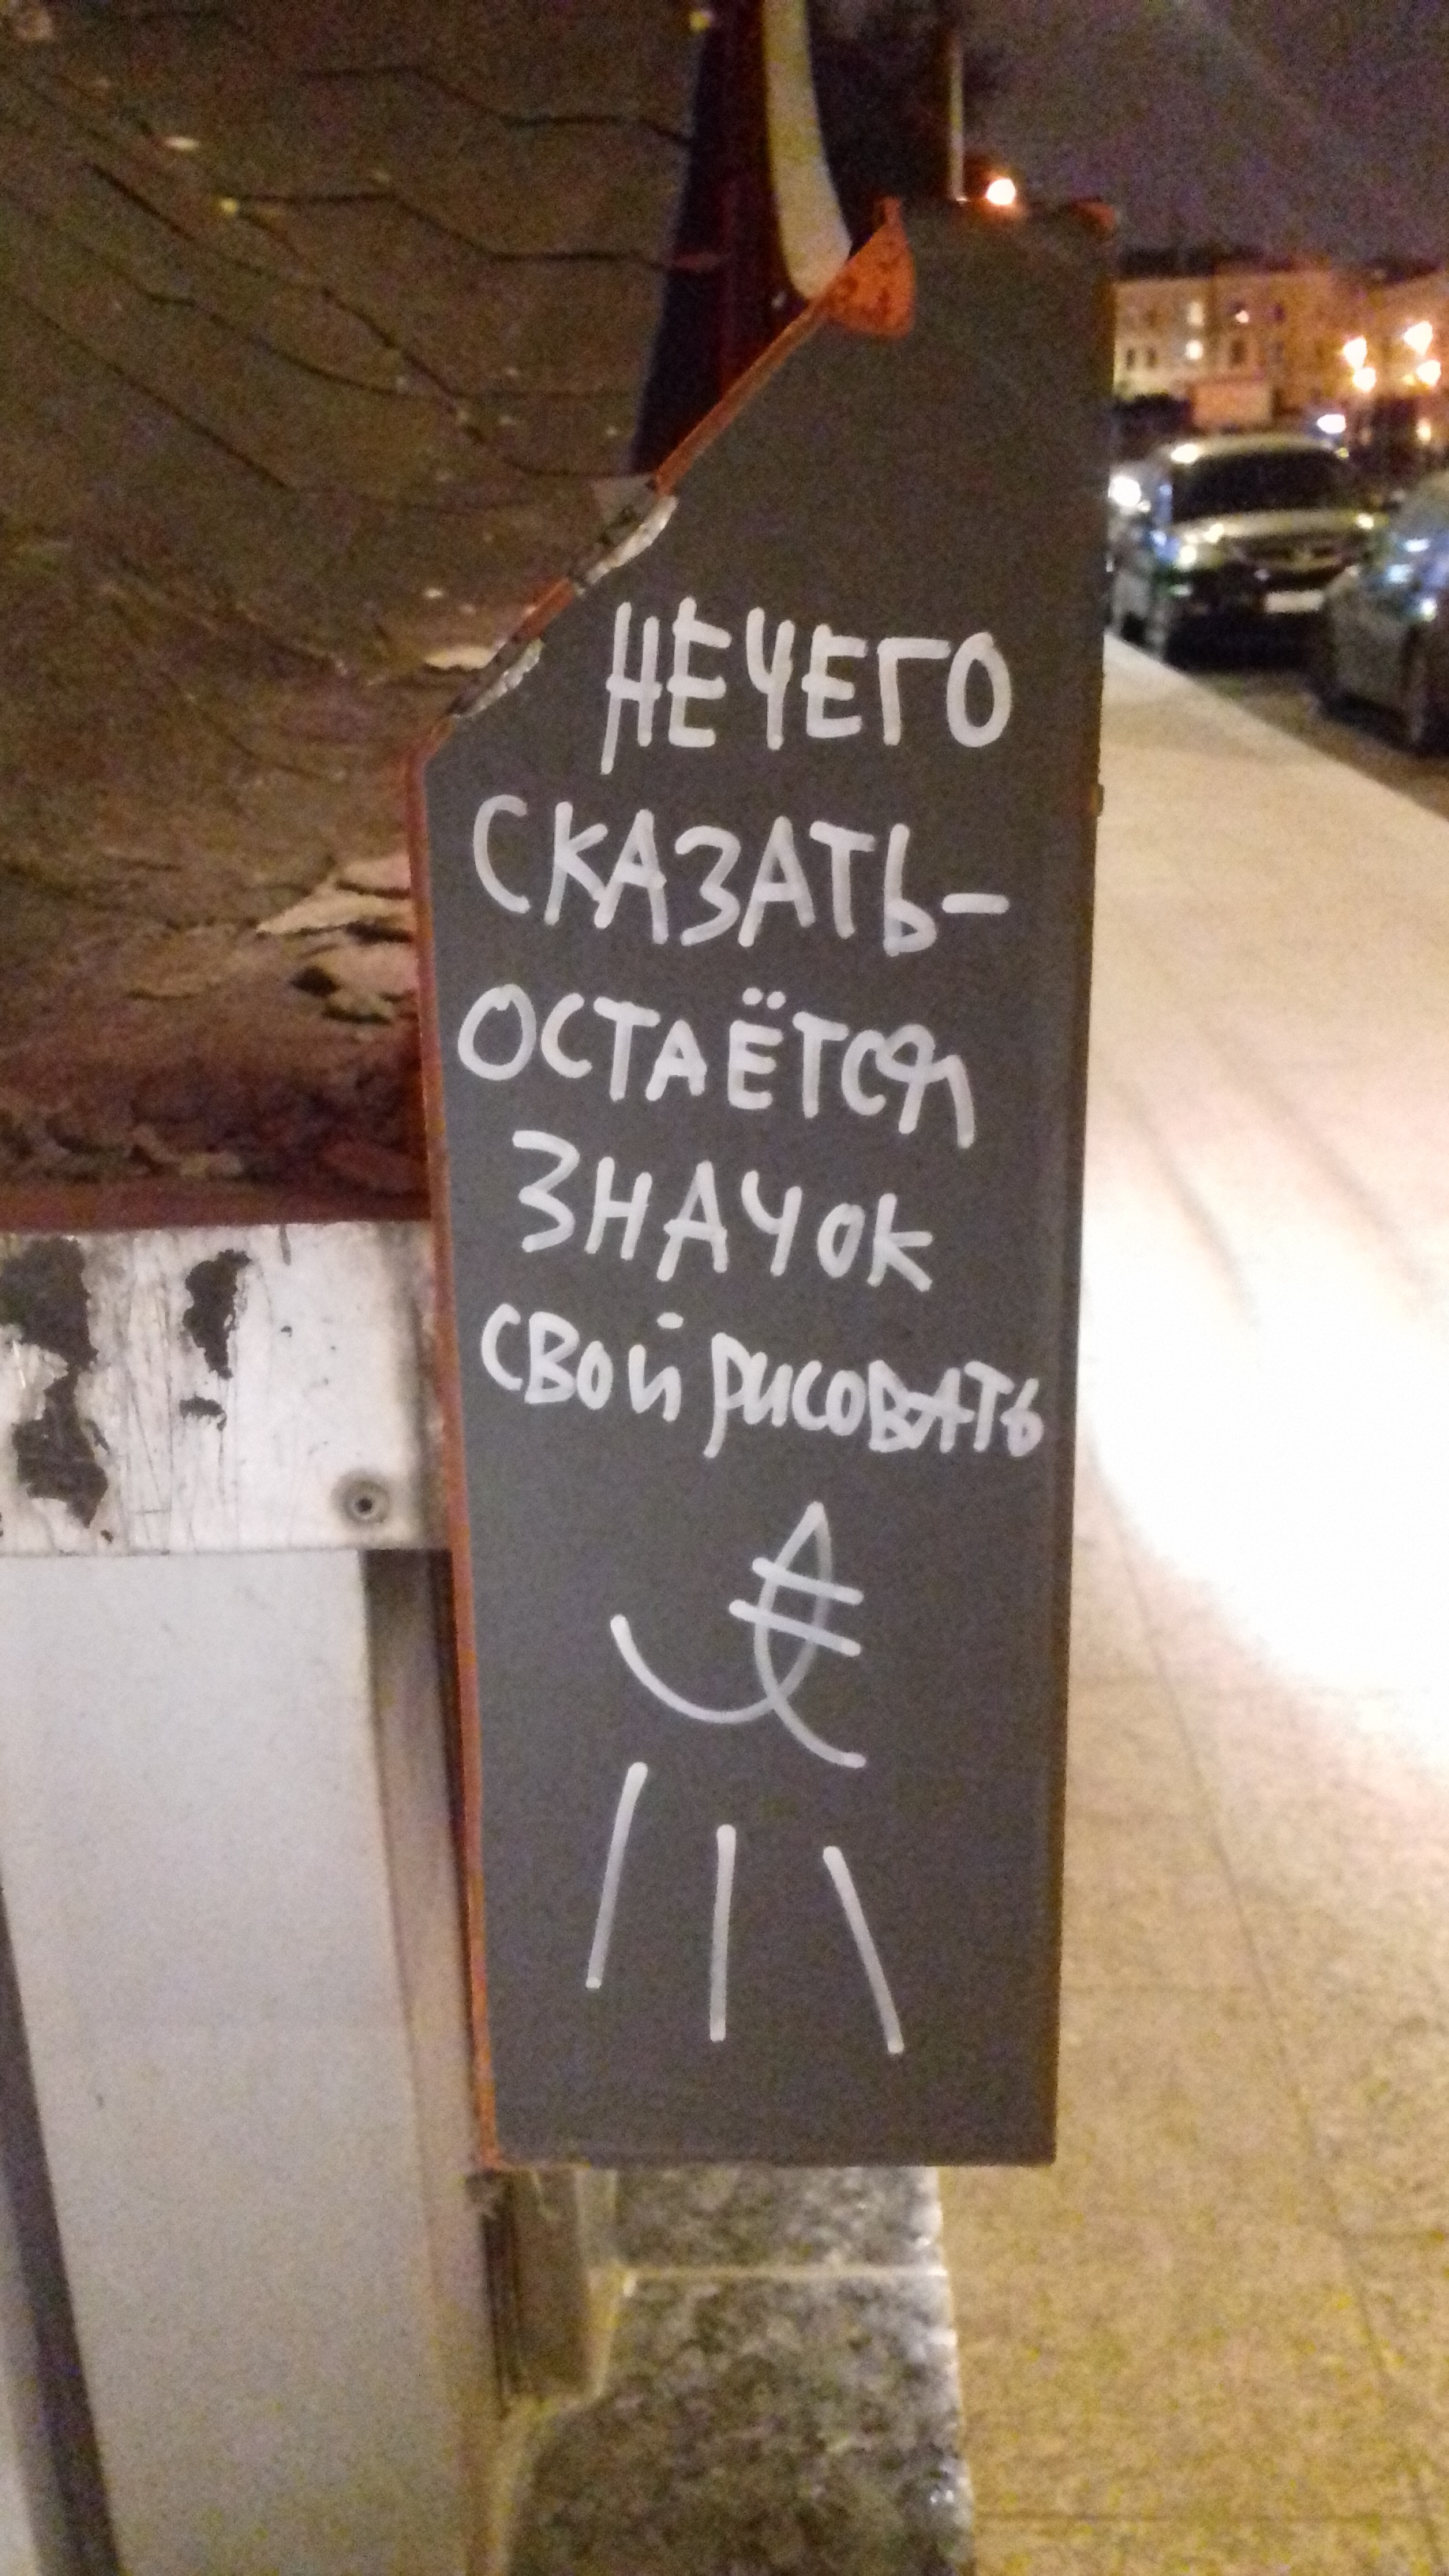 НЕЧЕГО
СКАЗАТЬ-
ОСТАЁТСЯ
ЗНАЧОК
СВОЙ РИСОВАТЬ